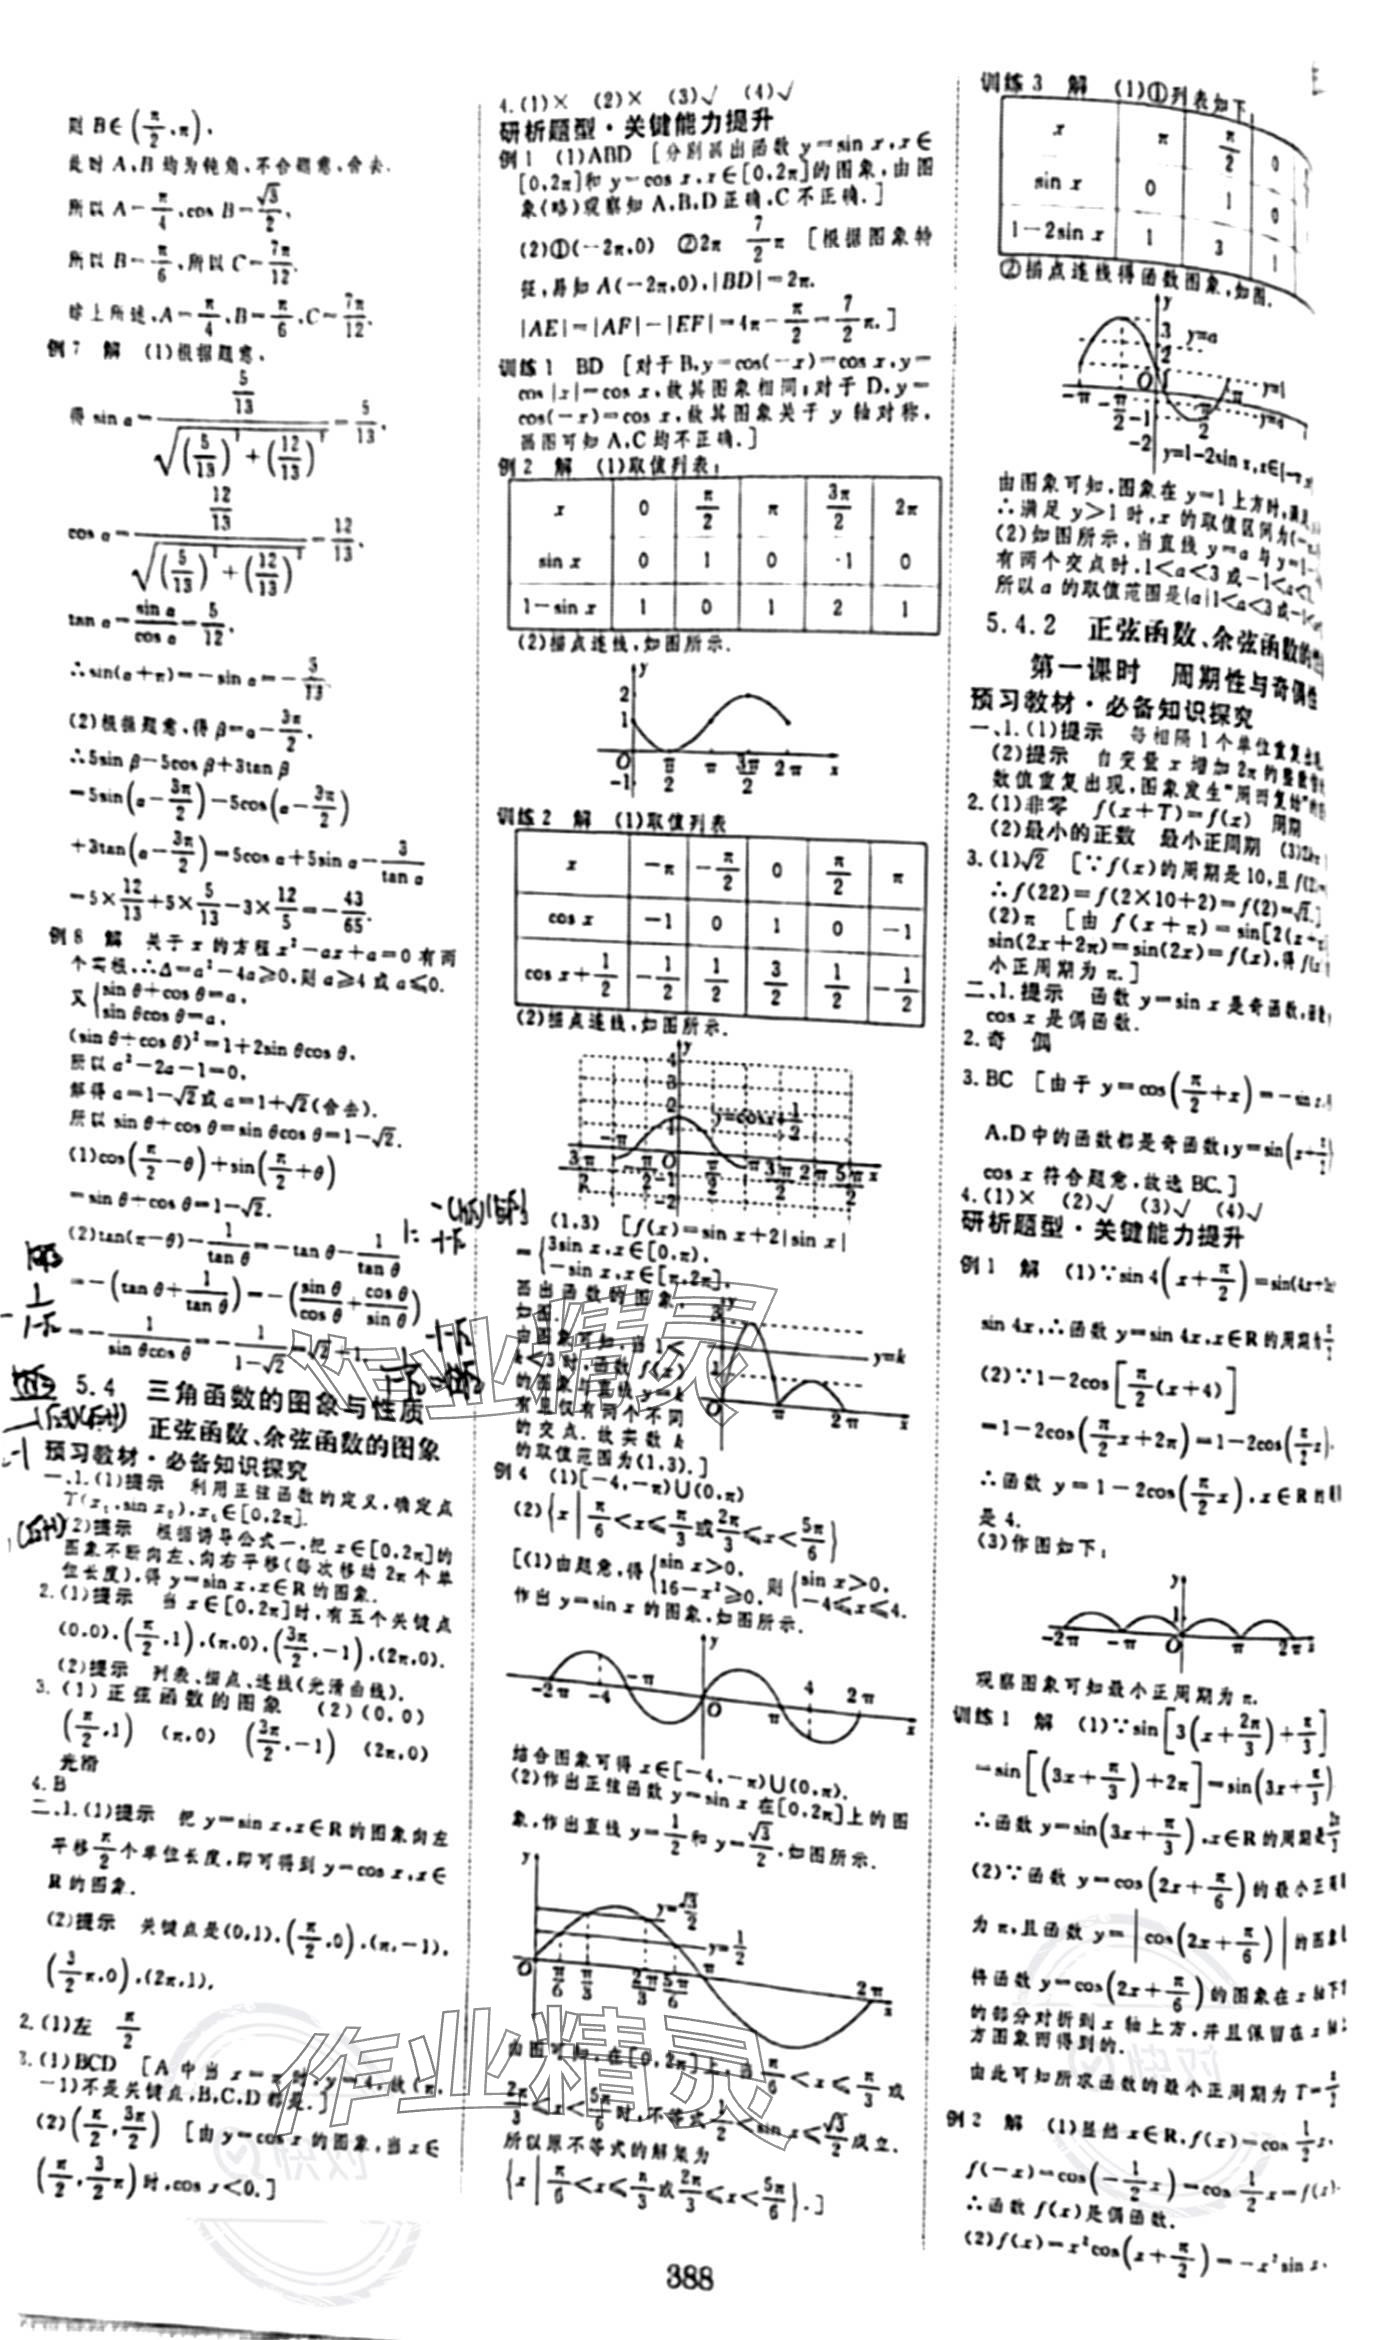 则 B∈(π/2,π),
此时 A,B 均为钝角,不合题意,舍去.
所以 A=π/4,cos B=√3/2,
所以 B=π/6,所以 C=7π/12.
综上所述,A=π/4,B=π/6,C=7π/12.
例 7 解 (1)根据题意,
得 sin α=(5/13)/√((5/13)²+(12/13)²)=5/13,
cos α=(12/13)/√((5/13)²+(12/13)²)=12/13,
tan α=sin α/cos α=5/12,
∴sin(α+π)=-sin α=-5/13.
(2)根据题意,得 β=α-3π/2,
∴5sin β-5cos β+3tan β
=5sin(α-3π/2)-5cos(α-3π/2)
+3tan(α-3π/2)=5cos α+5sin α-3/tan α
=5×12/13+5×5/13-3×12/5=-43/65.
例 8 解 关于 x 的方程 x²-ax+a=0 有两
个实根,∴Δ=a²-4a≥0,则 a≥4 或 a≤0.
又{sin θ+cos θ=a,
sin θcos θ=a,
(sin θ+cos θ)²=1+2sin θcos θ,
所以 a²-2a-1=0,
解得 a=1-√2或 a=1+√2(舍去).
所以 sin θ+cos θ=sin θcos θ=1-√2.
(1)cos(π/2-θ)+sin(π/2+θ)
=sin θ+cos θ=1-√2.
(2)tan(π-θ)-1/tan θ=-tan θ-1/tan θ
=-(tan θ+1/tan θ)=-(sin θ/cos θ+cos θ/sin θ)
=-1/sin θcos θ=-1/1-√2=√2+1.
5.4 三角函数的图象与性质
正弦函数、余弦函数的图象
预习教材·必备知识探究
一、1.(1)提示 利用正弦函数的定义,确定点
T(x₀,sin x₀),x₀∈[0,2π].
(2)提示 根据诱导公式一,把 x∈[0,2π]的
图象不断向左、向右平移(每次移动 2π 个单
位长度),得 y=sin x,x∈R 的图象.
2.(1)提示 当 x∈[0,2π]时,有五个关键点
(0,0),(π/2,1),(π,0),(3π/2,-1),(2π,0).
(2)提示 列表、描点、连线(光滑曲线).
3.(1)正弦函数的图象 (2)(0,0)
(π/2,1) (π,0) (3π/2,-1) (2π,0)
光滑
4.B
二、1.(1)提示 把 y=sin x,x∈R 的图象向左
平移π/2个单位长度,即可得到 y=cos x,x∈
R 的图象.
(2)提示 关键点是(0,1),(π/2,0),(π,-1),
(3/2π,0),(2π,1).
2.(1)左 π/2
3.(1)BCD [A 中当 x=π 时,y=4,故(π,
-1)不是关键点,B,C,D 都是.]
(2)(π/2,3π/2) [由 y=cos x 的图象,当 x∈
(π/2,3/2π)时,cos x<0.]
4.(1)× (2)× (3)√ (4)√
研析题型·关键能力提升
例 1 (1)ABD [分别画出函数 y=sin x,x∈
[0,2π]和 y=cos x,x∈[0,2π]的图象,由图
象(略)观察知 A,B,D 正确,C 不正确.]
(2)①(-2π,0) ②2π 7/2π [根据图象特
征,易知 A(-2π,0),|BD|=2π.
|AE|=|AF|-|EF|=4π-π/2=7/2π.]
训练 1 BD [对于 B,y=cos(-x)=cos x,y=
cos|x|=cos x,故其图象相同;对于 D,y=
cos(-x)=cos x,故其图象关于 y 轴对称,
画图可知 A,C 均不正确.]
例 2 解 (1)取值列表:
x 0 π/2 π 3π/2 2π
sin x 0 1 0 -1 0
1-sin x 1 0 1 2 1
(2)描点连线,如图所示.
y 2 1 O -1 π/2 π 3π/2 2π x
训练 2 解 (1)取值列表
x -π -π/2 0 π/2 π
cos x -1 0 1 0 -1
cos x+1/2 -1/2 1/2 3/2 1/2 -1/2
(2)描点连线,如图所示.
y 4 3 2 1 y=cos x+1/2
-π O
3π/2 π/2 -1 π/2 π 3π/2 2π 5π/2 x
-2
3 (1,3) [f(x)=sin x+2|sin x|
={3sin x,x∈[0,π),
-sin x,x∈[π,2π],
画出函数的图象,
如图.
由图象可知,当 1<
k<3 时,函数 f(x)
的图象与直线 y=k
有且仅有两个不同
的交点.故实数 k
的取值范围为(1,3).]
y 3 1 O π 2π x y=k
例 4 (1)[-4,-π)∪(0,π)
(2){x|π/6<x≤π/3或2π/3≤x<5π/6}
[(1)由题意,得{sin x>0,16-x²≥0,则{sin x>0,-4≤x≤4.
作出 y=sin x 的图象,如图所示.
y -2π -4 -π O π 4 2π x
结合图象可得 x∈[-4,-π)∪(0,π).
(2)作出正弦函数 y=sin x 在[0,2π]上的图
象,作出直线 y=1/2和 y=√3/2,如图所示.
y y=√3/2 y=1/2 O π/6 π/3 2π/3 5π/6 π 2π x
由图可知,在[0,2π]上,当π/6<x≤π/3或
2π/3≤x<5π/6时,不等式1/2<sin x≤√3/2成立.
所以原不等式的解集为
{x|π/6<x≤π/3或2π/3≤x<5π/6}.]
训练 3 解 (1)①列表如下:
x π π/2 0
sin x 0 1 0
1-2sin x 1 3 1
②描点连线得函数图象,如图.
y 3 2 1 O -1 -2 -π -π/2 π/2 π y=a y=1
y=1-2sin x,x∈[-π
由图象可知,图象在 y=1 上方时,
∴满足 y>1 时,x 的取值区间为(-π
(2)如图所示,当直线 y=a 与 y=1-
有两个交点时,1<a<3 或-1<a<1,
所以 a 的取值范围是{a|1<a<3或-1<a
5.4.2 正弦函数、余弦函数的性
第一课时 周期性与奇偶性
预习教材·必备知识探究
一、1.(1)提示 每相隔 1 个单位重复出现
(2)提示 自变量 x 增加 2π 的整数倍
数值重复出现,图象发生“周而复始”的
2.(1)非零 f(x+T)=f(x) 周期
(2)最小的正数 最小正周期 (3)2kπ
3.(1)√2 [∵f(x)的周期是 10,且 f(2)=
∴f(22)=f(2×10+2)=f(2)=√2.]
(2)π [由 f(x+π)=sin[2(x+π
sin(2x+2π)=sin(2x)=f(x),得 f(x
小正周期为 π.]
二、1.提示 函数 y=sin x 是奇函数,函数
cos x 是偶函数.
2.奇 偶
3.BC [由于 y=cos(π/2+x)=-sin x,
A,D 中的函数都是奇函数;y=sin(x+π/2)
cos x 符合题意,故选 BC.]
4.(1)× (2)√ (3)√ (4)√
研析题型·关键能力提升
例 1 解 (1)∵sin 4(x+π/2)=sin(4x+2π
sin 4x,∴函数 y=sin 4x,x∈R 的周期π/2
(2)∵1-2cos[π/2(x+4)]
=1-2cos(π/2x+2π)=1-2cos(π/2x),
∴函数 y=1-2cos(π/2x),x∈R 的
是 4.
(3)作图如下:
y 1 -2π -π O π 2π x
观察图象可知最小正周期为 π.
训练 1 解 (1)∵sin[3(x+2π/3)+π/3]
=sin[(3x+π/3)+2π]=sin(3x+π/3)
∴函数 y=sin(3x+π/3),x∈R 的周期是2π/3
(2)∵函数 y=cos(2x+π/6)的最小正
为 π,且函数 y=|cos(2x+π/6)|的图象
将函数 y=cos(2x+π/6)的图象在 x 轴下
的部分对折到 x 轴上方,并且保留在 x 轴上
方图象而得到的.
由此可知所求函数的最小正周期为 T=π/2
例 2 解 (1)显然 x∈R,f(x)=cos 1/2x,
f(-x)=cos(-1/2x)=cos 1/2x=f(x),
∴函数 f(x)是偶函数.
(2)f(x)=x²cos(x+π/2)=-x²sin x,
388
作业精灵
作业精灵